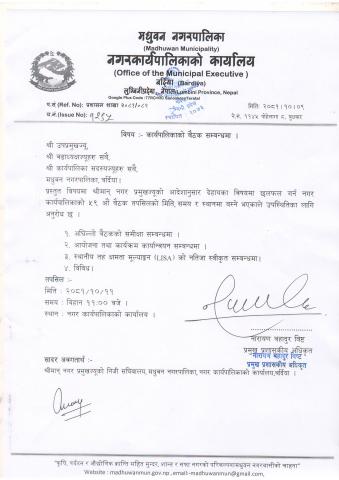 मधुवन नगरपालिका
(Madhuwan Municipality)
नगरकार्यपालिकाको कार्यालय
(Office of the Municipal Executive )
बर्दिया (Bardiya)
लुम्बिनी प्रदेश, नेपाल Lumbini Province, Nepal
प.सं (Ref. No): प्रशासन शाखा २०८१/०८२
मिति: २०८१।१०।०९
च.नं.(Issue No):
ने.सं. ११४५ पोहेलाथ्व ८, बुधबार
विषय :- कार्यपालिकाको बैठक सम्बन्धमा ।
श्री उपप्रमुखज्यू,
श्री वडाध्यक्षज्यूहरु सबै,
श्री कार्यपालिका सदस्यज्यूहरु सबै,
मधुवन नगरपालिका, बर्दिया ।
प्रस्तुत विषयमा श्रीमान् नगर प्रमुखज्यूको आदेशानुसार देहायका विषयमा छलफल गर्न नगर
कार्यपालिकाको ५९ औं बैठक तपसिलको मिति, समय र स्थानमा बस्ने भएकाले उपस्थितिका लागि
अनुरोध छ ।
१. अघिल्लो बैठकको समीक्षा सम्बन्धमा ।
२. आयोजना तथा कार्यक्रम कार्यान्वयन सम्बन्धमा ।
३. स्थानीय तह क्षमता मूल्याङ्कन (LISA) को नतिजा स्वीकृत सम्बन्धमा ।
४. विविध ।
तपसिल :-
मिति : २०८१/१०/११
समय : बिहान ११:०० बजे ।
स्थान : नगर कार्यपालिकाको कार्यालय ।
नारायण बहादुर विष्ट
प्रमुख प्रशासकीय अधिकृत
नारायण बहादुर विष्ट
प्रमुख प्रशासकीय अधिकृत
सादर अवगतार्थ :-
श्रीमान् नगर प्रमुखज्यूको निजी सचिवालय, मधुवन नगरपालिका, नगर कार्यपालिकाको कार्यालय, बर्दिया ।
"कृषि, पर्यटन र औद्योगिक क्रान्ति सहित सुन्दर, शान्त र सभ्य नगरको परिकल्पना मधुवन नगरबासीको चाहना"
Website : madhuwanmun.gov.np, email-madhuwanmun@gmail.com,